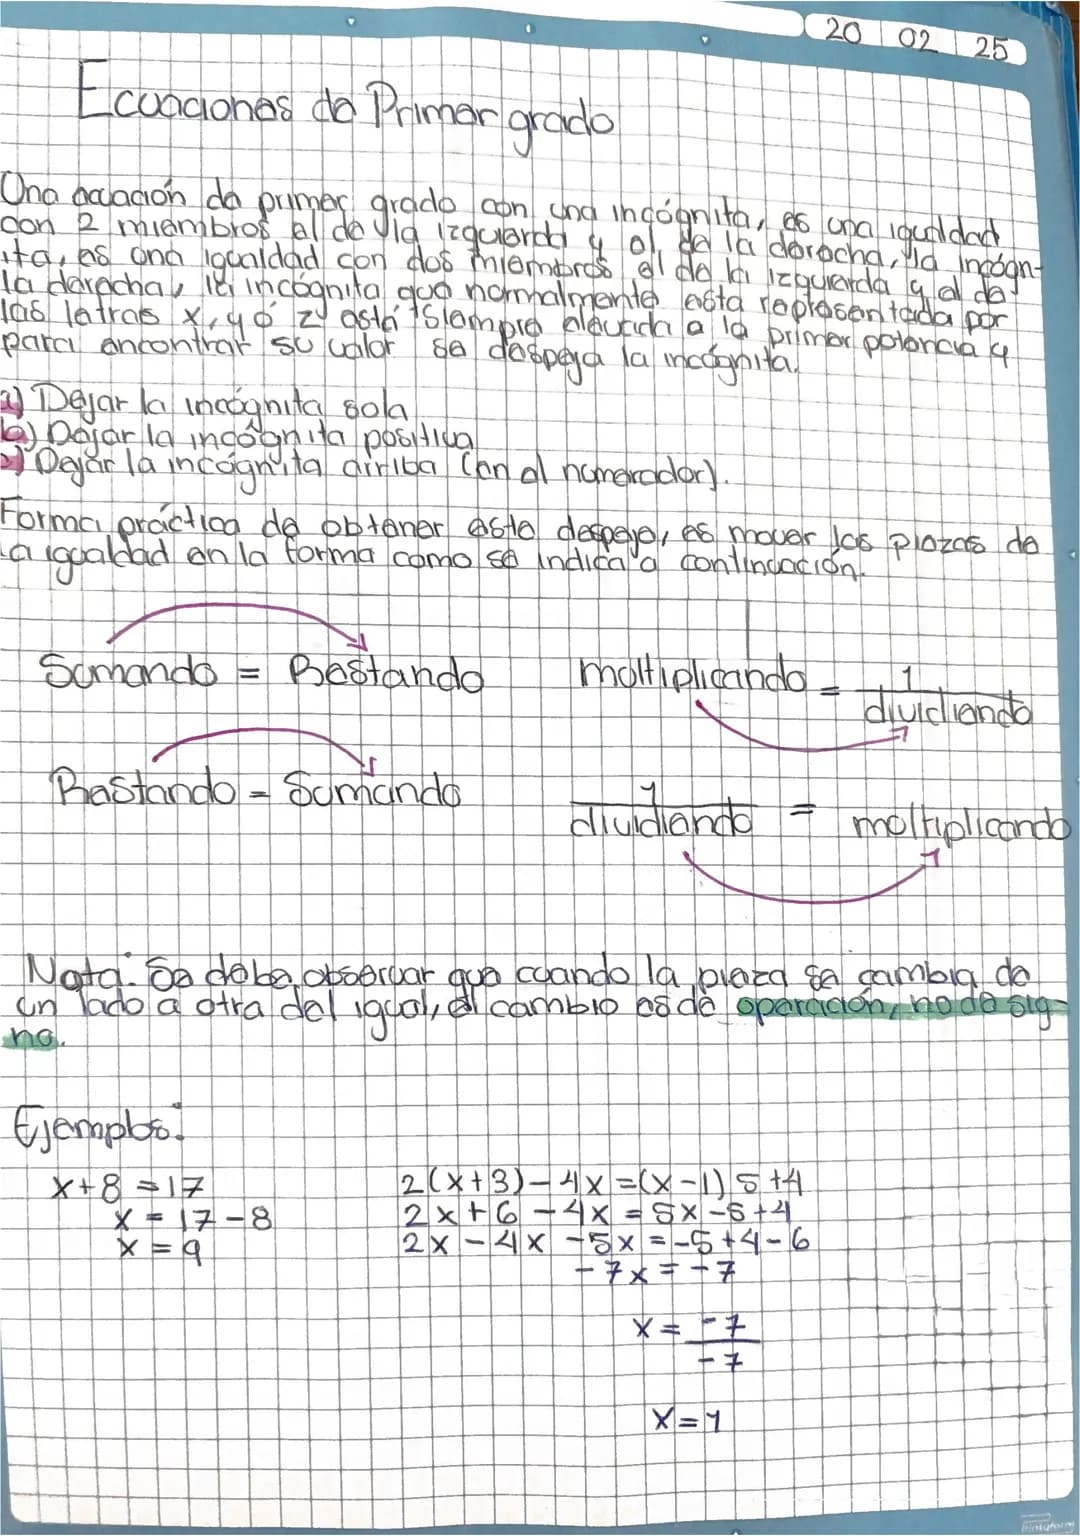 20 02 25
Ecuaciones de Primer grado
Una ecuación de primer grado con una incógnita, es una igualdad
con 2 miembros el de la izquierda y el de la derecha, la incógn-
ita, es una igualdad con dos miembros el de la izquierda y el de
la derecha, la incógnita que normalmente esta representada por
las letras x, y ó z y está siempre elevada a la primer potencia y
para encontrar su valor se despeja la incógnita.
a) Dejar la incógnita sola
b) Dejar la incógnita positiva
c) Dejar la incógnita arriba (en el numerador).
Forma práctica de obtener este despeje, es mover las piezas de
La igualdad en la forma como se indica a continuación.
Sumando = Restando
multiplicando = 1
dividiendo
Restando = Sumando
1
dividiendo = multiplicando
Nota: Se debe observar que cuando la pieza se cambia de
un lado a otra del igual, el cambio es de operación, no de sig-
no.
Ejemplos:
x+8=17
x = 17-8
x = 9
2(x+3)-4x=(x-1)5+4
2x+6-4x=5x-5+4
2x-4x-5x=-5+4-6
-7x=-7
x= -7
-7
x=1